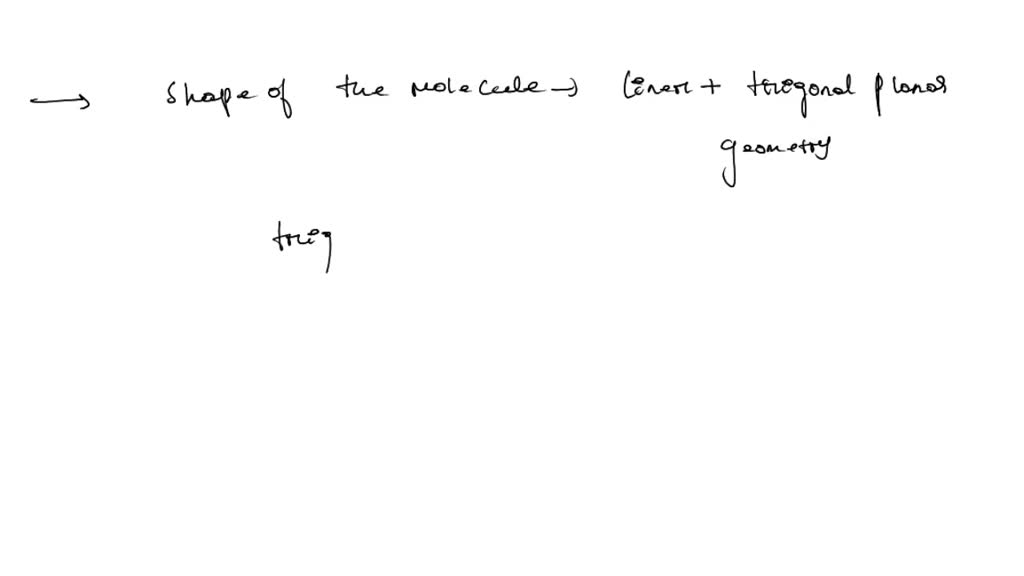 ⟶ shape of the molecule → linear + trigonal planar
geometry
trig